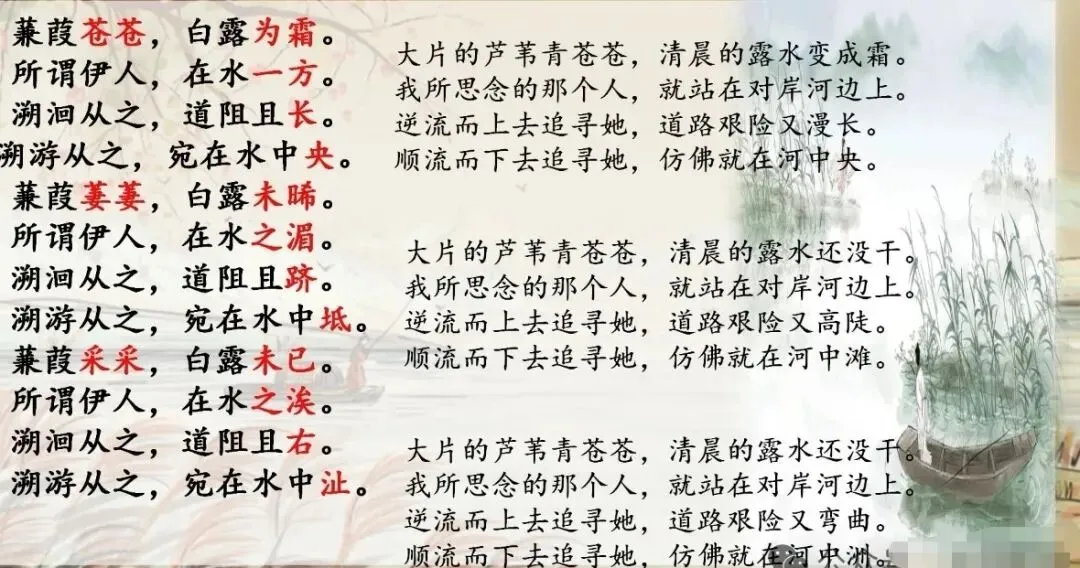 蒹葭苍苍，白露为霜。
所谓伊人，在水一方。
溯洄从之，道阻且长。
溯游从之，宛在水中央。
蒹葭萋萋，白露未晞。
所谓伊人，在水之湄。
溯洄从之，道阻且跻。
溯游从之，宛在水中坻。
蒹葭采采，白露未已。
所谓伊人，在水之涘。
溯洄从之，道阻且右。
溯游从之，宛在水中沚。
大片的芦苇青苍苍，清晨的露水变成霜。
我所思念的那个人，就站在对岸河边上。
逆流而上去追寻她，道路艰险又漫长。
顺流而下去追寻她，仿佛就在河中央。
大片的芦苇青苍苍，清晨的露水还没干。
我所思念的那个人，就站在对岸河边上。
逆流而上去追寻她，道路艰险又高陡。
顺流而下去追寻她，仿佛就在河中滩。
大片的芦苇青苍苍，清晨的露水还没干。
我所思念的那个人，就站在对岸河边上。
逆流而上去追寻她，道路艰险又弯曲。
顺流而下去追寻她，仿佛就在河中洲。